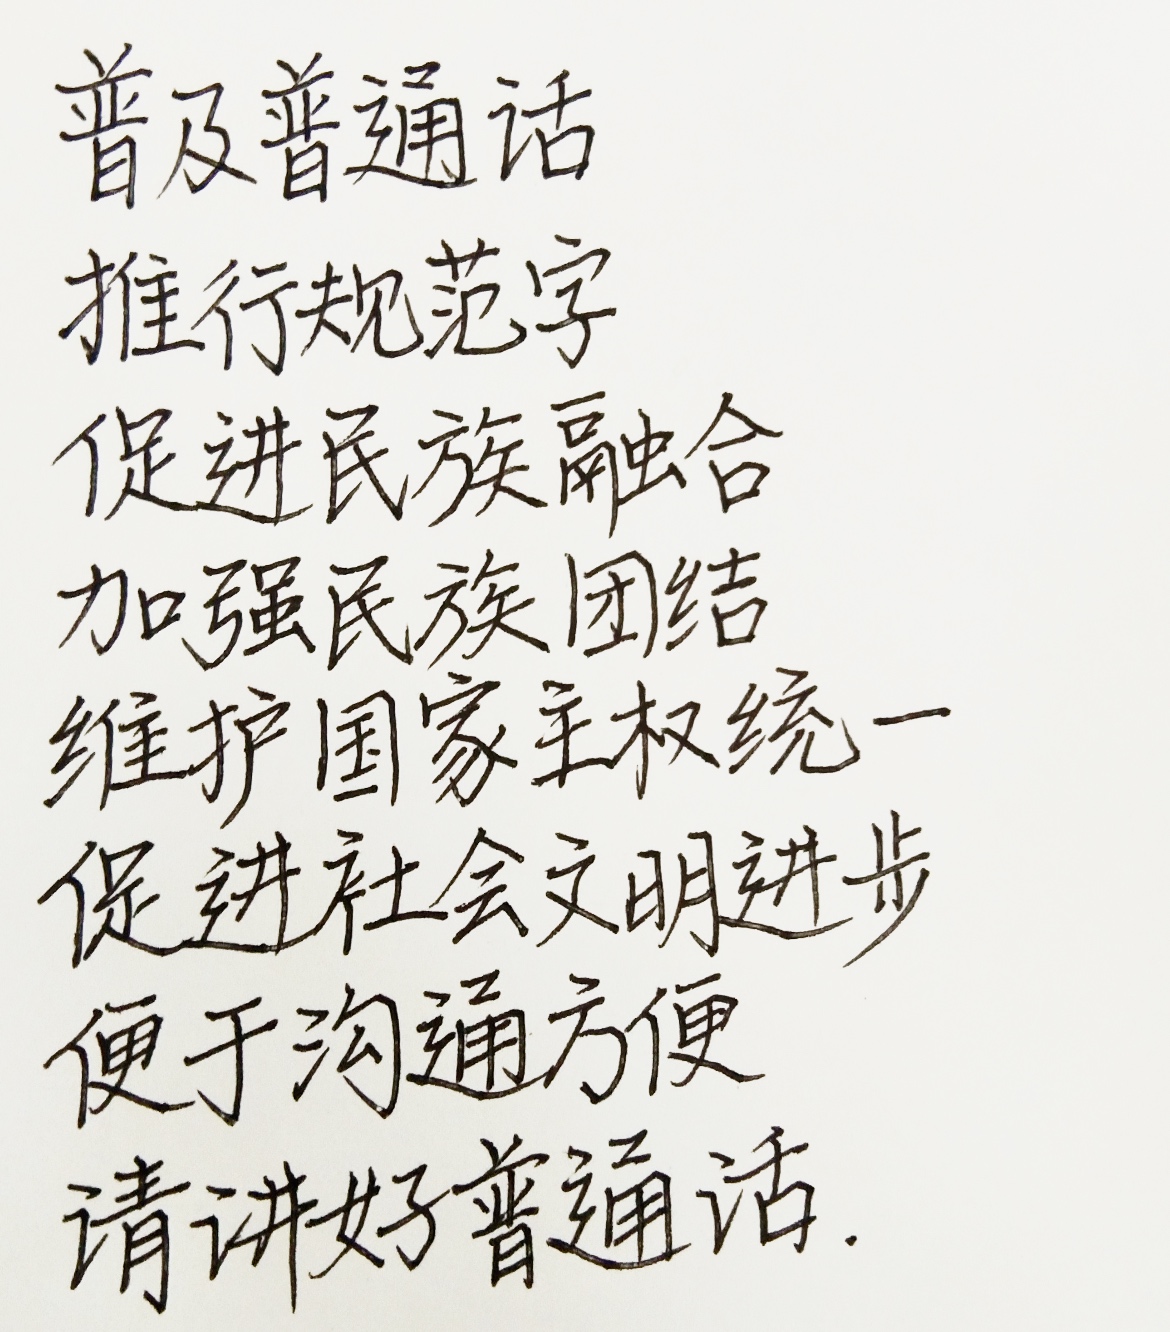 普及普通话
推行规范字
促进民族融合
加强民族团结
维护国家主权统一
促进社会文明进步
便于沟通方便
请讲好普通话.